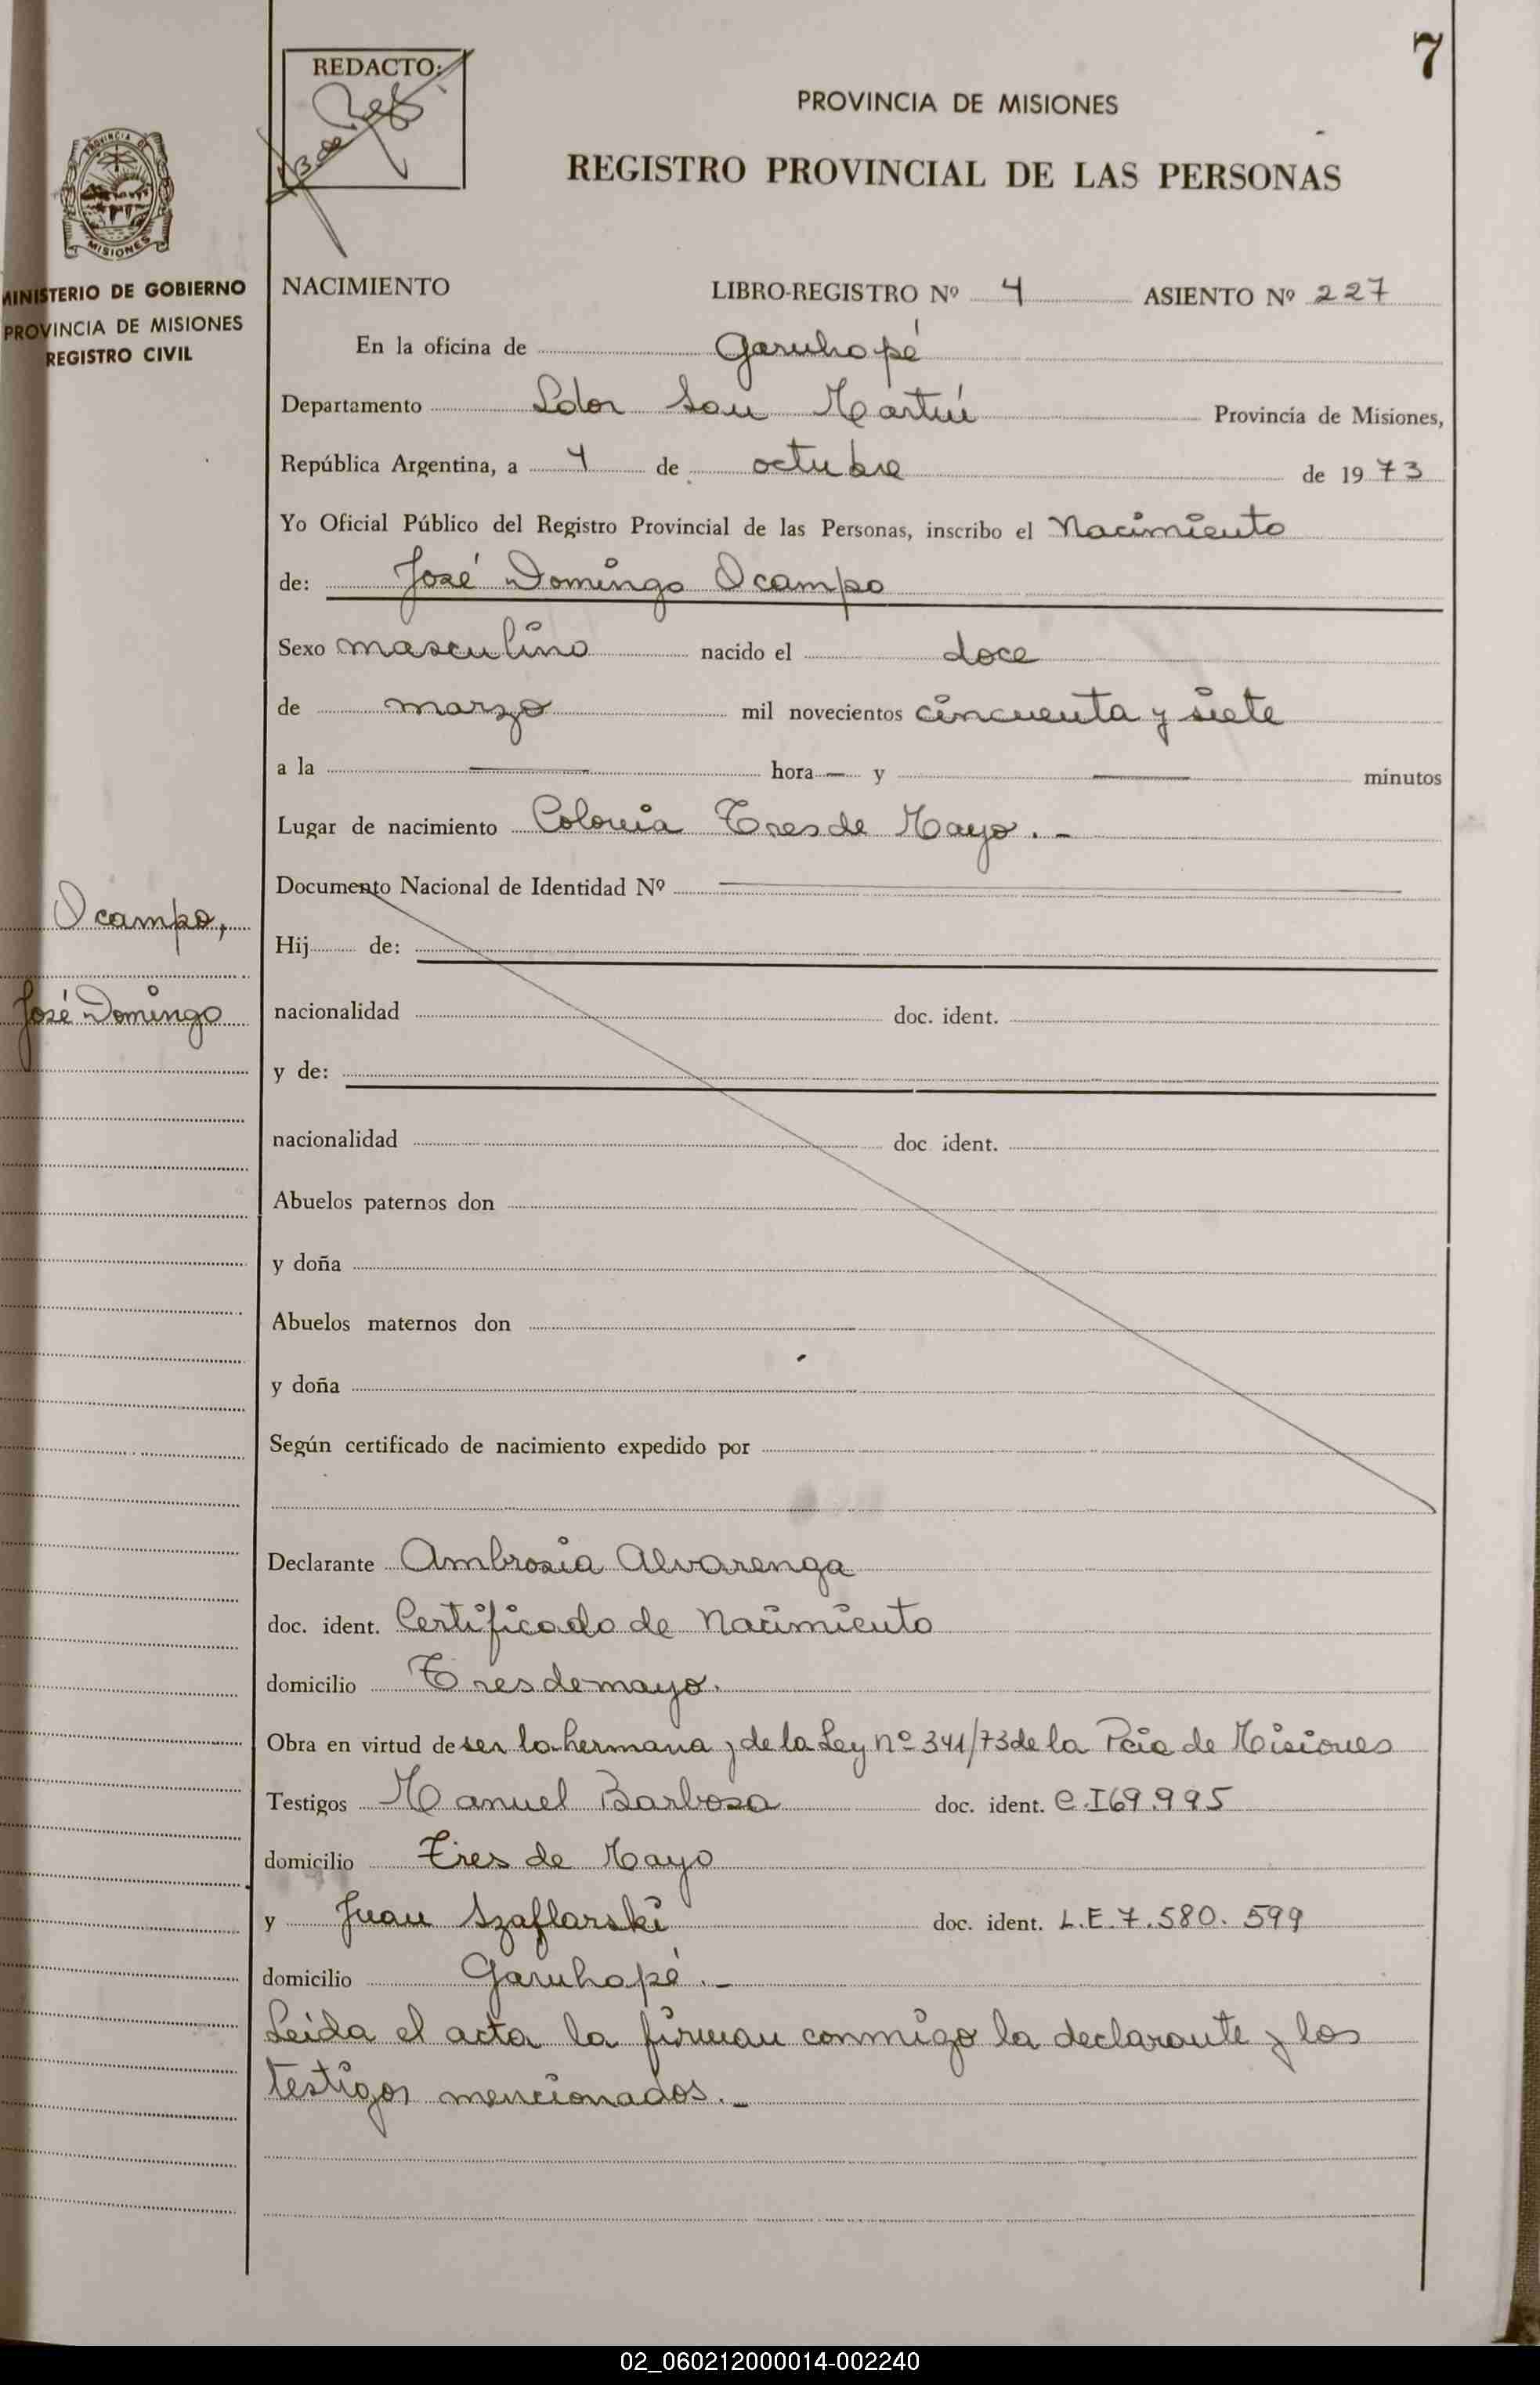 7
REDACTO:
PROVINCIA DE MISIONES
REGISTRO PROVINCIAL DE LAS PERSONAS
PROVINCIA DE
MISIONES
MINISTERIO DE GOBIERNO
PROVINCIA DE MISIONES
REGISTRO CIVIL
NACIMIENTO LIBRO-REGISTRO Nº 4 ASIENTO Nº 227
En la oficina de Garuhapé
Departamento Ldor San Martín Provincia de Misiones,
República Argentina, a 4 de octubre de 1973
Yo Oficial Público del Registro Provincial de las Personas, inscribo el Nacimiento
de: José Domingo Ocampo
Sexo masculino nacido el doce
de marzo mil novecientos cincuenta y siete
a la — hora — y — minutos
Lugar de nacimiento Colonia Tres de Mayo. -
Documento Nacional de Identidad Nº
Ocampo,
José Domingo
Hij de:
nacionalidad doc. ident.
y de:
nacionalidad doc ident.
Abuelos paternos don
y doña
Abuelos maternos don
y doña
Según certificado de nacimiento expedido por
Declarante Ambrosia Alvarenga
doc. ident. Certificado de Nacimiento
domicilio Tres de mayo.
Obra en virtud de ser la hermana y de la Ley nº 341/73 de la Pcia de Misiones
Testigos Manuel Barbosa doc. ident. C.I 69.995
domicilio Tres de Mayo
y Juan Szaflarski doc. ident. L.E. 7.580.599
domicilio Garuhapé. -
Leída el acta la firman conmigo la declarante y los
testigos mencionados. -
02_060212000014-002240